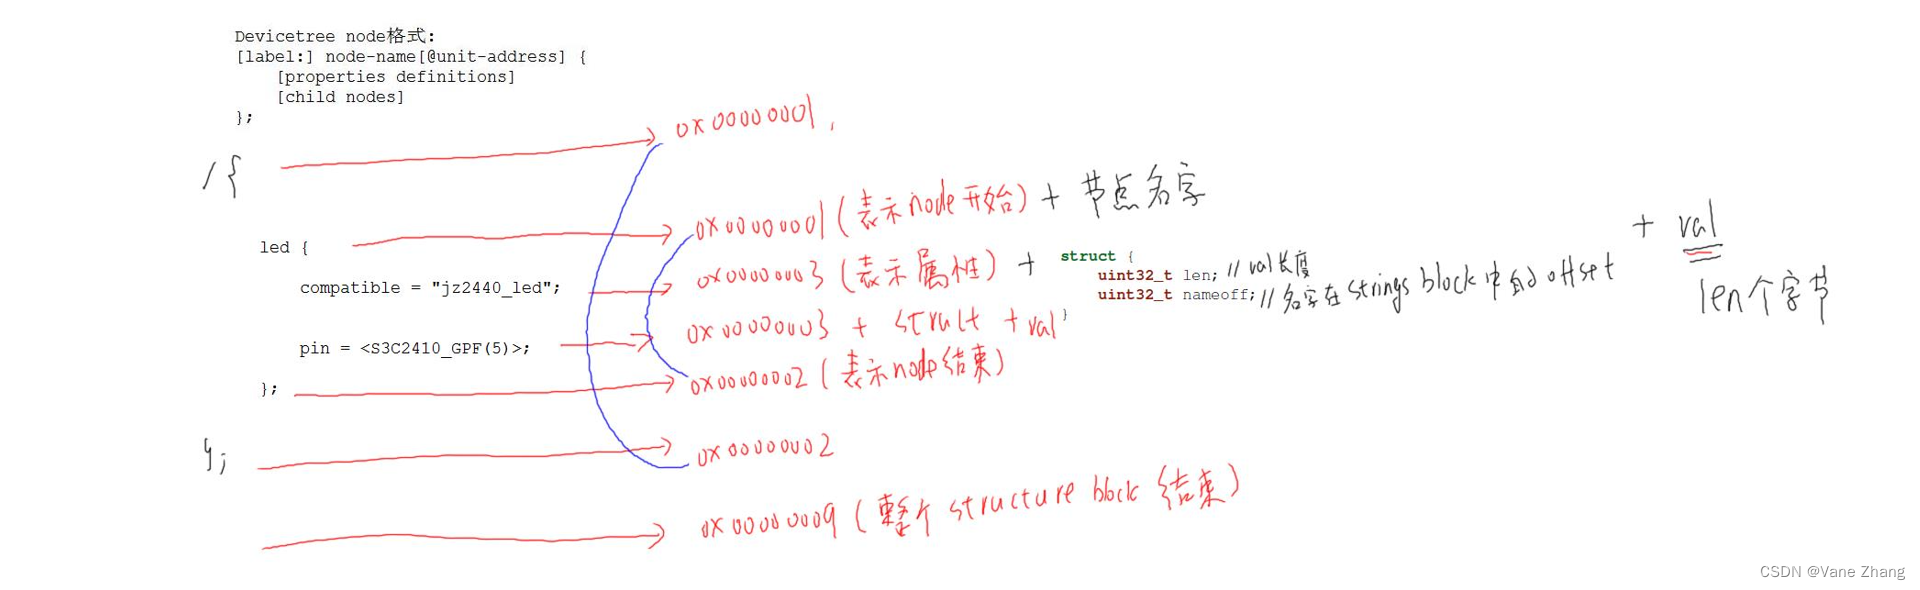 Devicetree node格式:
[label:] node-name[@unit-address] {
[properties definitions]
[child nodes]
};
/{
0x00000001,
led {
0x00000001(表示node开始) + 节点名字
compatible = "jz2440_led";
0x00000003 (表示属性) +
struct {
uint32_t len; // val长度
uint32_t nameoff; // 名字在strings block中的offset
}
+ val
len个字节
pin = <S3C2410_GPF(5)>;
0x00000003 + struct + val
};
0x00000002 (表示node结束)
};
0x00000002
0x00000009 (整个structure block 结束)
CSDN @Vane Zhang